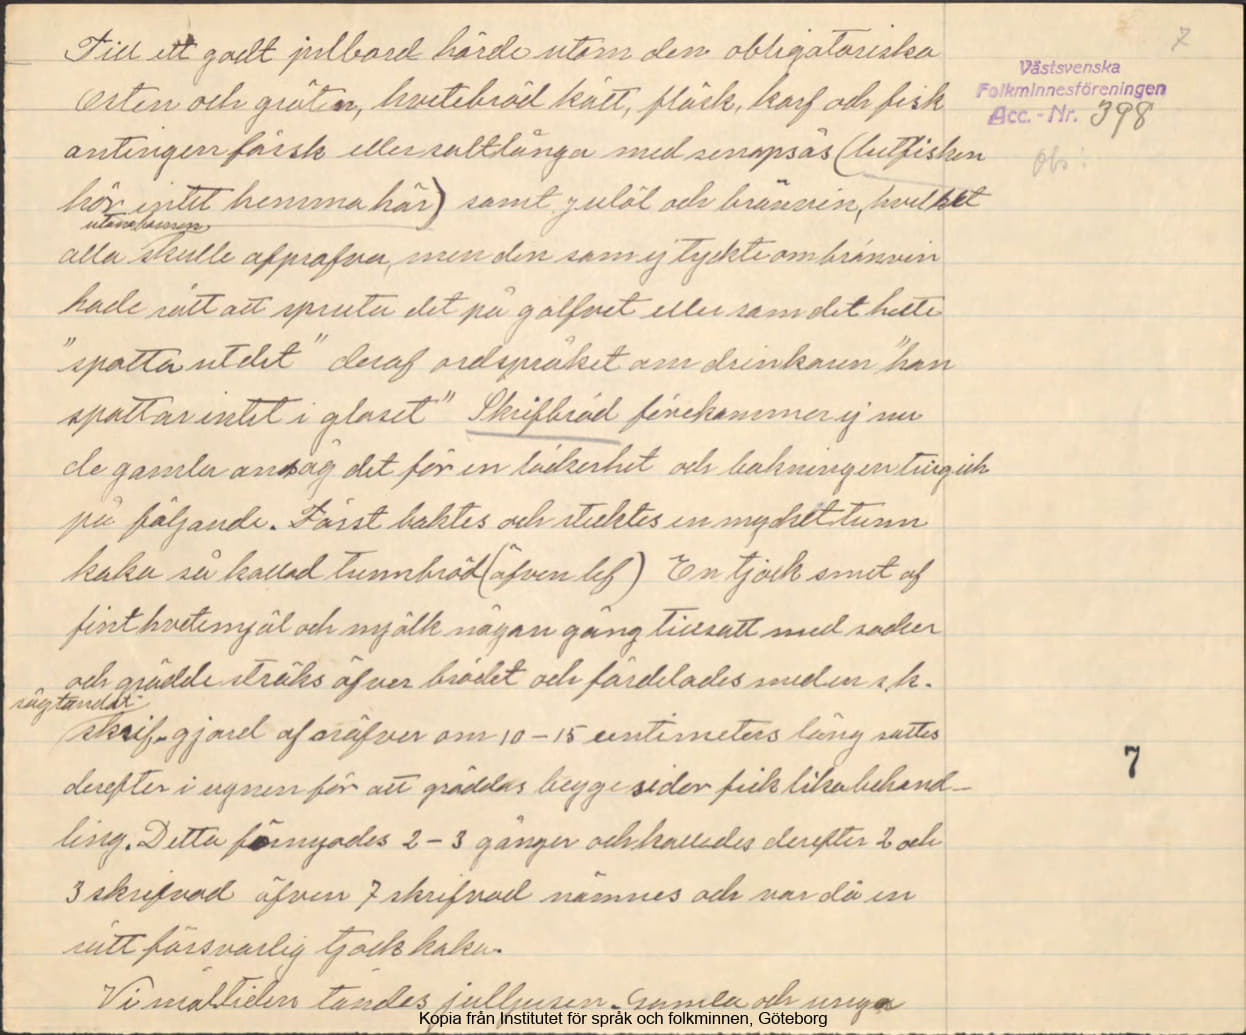 7
Till ett godt julbord hörde utom den obligatoriska
Västsvenska
Folkminnesföreningen
Acc.-Nr. 398
Obs!
Osten och gröten, hvetebröd kött, fläsk, korf och fisk
antingen färsk eller saltlånga med senapsås (lutfisken
hör intet hemma här) samt julöl och bränvin, hvilket
utom barnen
alla skulle afprofva, men den som ej tyckte om bränvin
hade rätt att spruta det på golfvet eller som det hette
"spotta ut det" deraf ordspråket om drinkaren "han
spottar intet i glaset" Skrifbröd förekommer ej nu
de gamla ansåg det för en läckerhet och bakningen tillgick
på följande. Först baktes och stektes en mycket tunn
kaka så kallad tunnbröd (äfven lef) En tjock smet af
fint hvetemjöl och mjölk någon gång tillsatt med socker
och grädde ströks öfver brödet och fördelades med en s.k.
sågtandat
skrif. gjord af näfver om 10-15 centimeters läng sattes
derefter i ugnen för att gräddas begge sidor fick lika behand-
7
ling. Detta förnyades 2-3 gånger och kallades derefter 2 och
3 skrifvad äfven 7 skrifvad nämnes och var då en
rätt försvarlig tjock kaka.
Vi måltiden tändes julljusen. Gamla och unga
Kopia från Institutet för språk och folkminnen, Göteborg